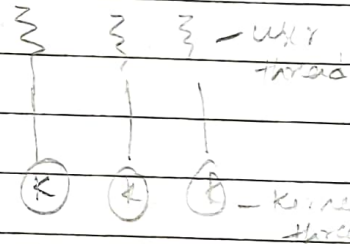 - User
thread
K K K - Kerne
thre